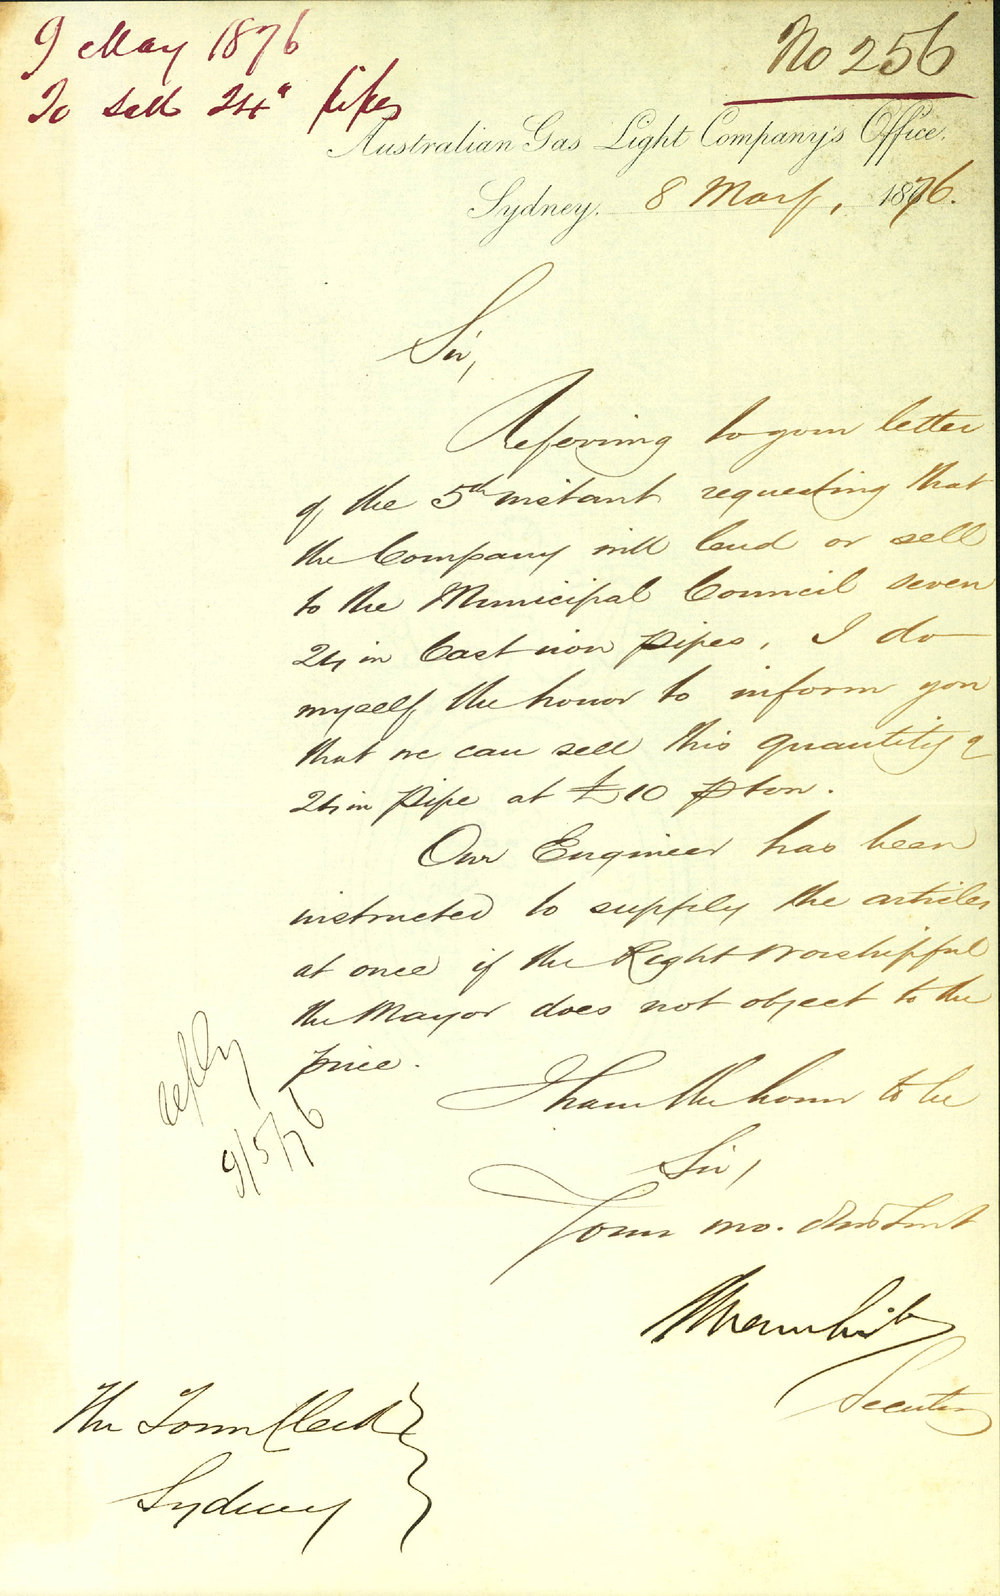 9 May 1876
To sell 24" pipes
No 256
Australian Gas Light Company's Office.
Sydney. 8 May, 1876.
Sir,
Referring to your letter
of the 5th instant requesting that
the Company will lend or sell
to the Municipal Council seven
24 in Cast iron pipes, I do
myself the honor to inform you
that we can sell this quantity of
24 in pipe at £10 ⅌ ton.
Our Engineer has been
instructed to supply the articles
at once if the Right Worshipful
the Mayor does not object to the
price.
reply
9/5/76
I have the honor to be
Sir,
Your mo. Obed Servt
Secretary
The Town Clerk
Sydney